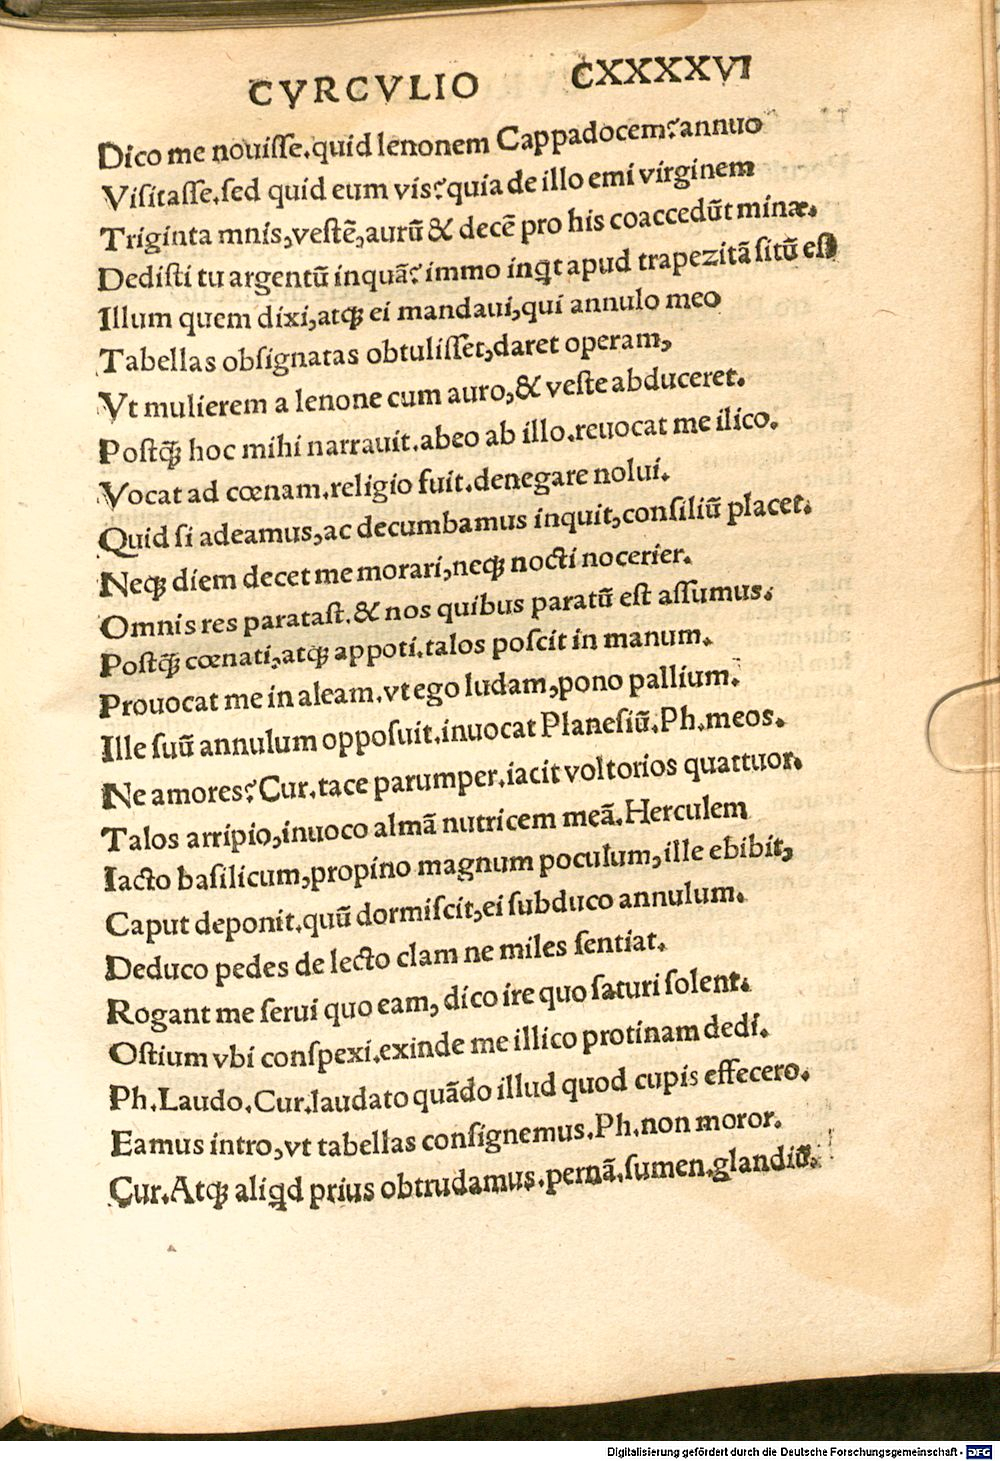 CVRCVLIO CXXXXVI
Dico me nouiſſe.quid lenonem Cappadocem?annuo
Viſitaſſe.ſed quid eum vis?quia de illo emi virginem
Triginta mnis,veſtē,aurū & decē pro his coaccedūt minæ.
Dediſti tu argentū inquā? immo inqt apud trapezitā ſitū eſt
Illum quem dixi,atqꝫ ei mandaui,qui annulo meo
Tabellas obſignatas obtuliſſet,daret operam,
Vt mulierem a lenone cum auro,& veſte abduceret.
Poſtqꝫ hoc mihi narrauit.abeo ab illo.reuocat me ilico.
Vocat ad cœnam.religio fuit.denegare nolui.
Quid ſi adeamus,ac decumbamus inquit,conſiliū placet.
Neqꝫ diem decet me morari,neqꝫ nocti nocerier.
Omnis res parataſt.& nos quibus paratū eſt aſſumus.
Poſtqꝫ cœnati,atqꝫ appoti.talos poſcit in manum.
Prouocat me in aleam.vt ego ludam,pono pallium.
Ille ſuū annulum oppoſuit.inuocat Planeſiū.Ph.meos.
Ne amores?Cur.tace parumper.iacit voltorios quattuor.
Talos arripio,inuoco almā nutricem meā.Herculem
Iacto baſilicum,propino magnum poculum,ille ebibit,
Caput deponit.quū dormiſcit,ei ſubduco annulum.
Deduco pedes de lecto clam ne miles ſentiat.
Rogant me ſerui quo eam, dico ire quo ſaturi ſolent.
Oſtium vbi conſpexi.exinde me illico protinam dedi.
Ph.Laudo.Cur.laudato quādo illud quod cupis effecero.
Eamus intro,vt tabellas conſignemus.Ph.non moror.
Cur.Atqꝫ aliqd prius obtrudamus.pernā.ſumen.glandiū.
Digitalisierung gefördert durch die Deutsche Forschungsgemeinschaft - DFG